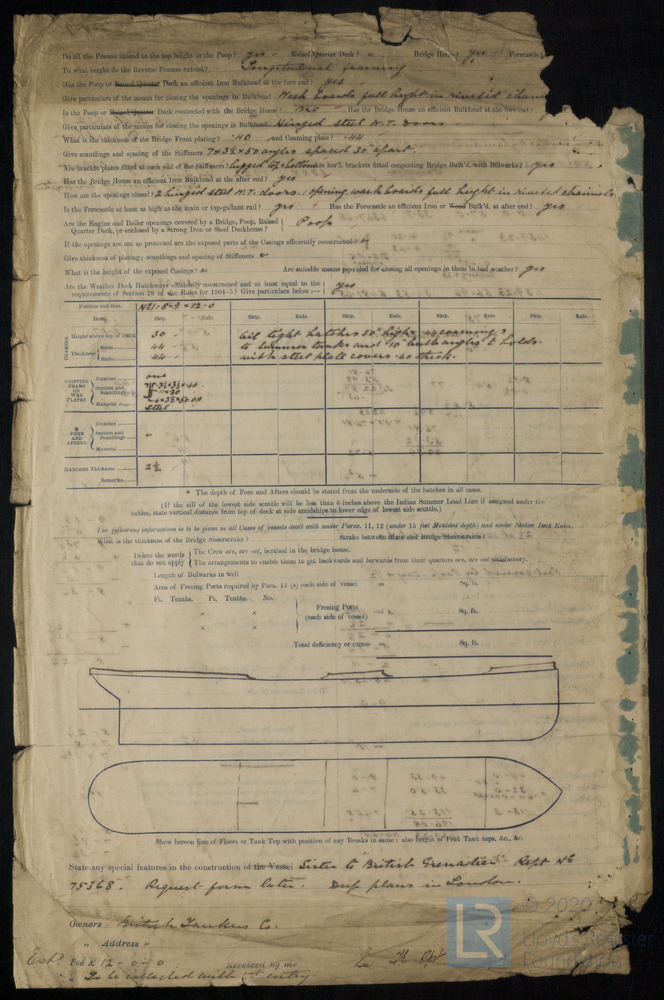 Do all the Frames extend to the top height in the Poop? yes Raised Quarter Deck? Bridge House? yes Forecastle
To what height do the Reverse Frames extend? Longitudinal framing
Has the Poop or Raised Quarter Deck an efficient Iron Bulkhead at the fore end? yes
Give particulars of the means for closing the openings in Bulkhead Wash boards full hight in riveted chan
Is the Poop or Raised Quarter Deck connected with the Bridge House? no Has the Bridge House an efficient Bulkhead at the fore end?
Give particulars of the means for closing the openings in Bulkhead Hinged steel W.T. Doors
What is the thickness of the Bridge Front plating? .40 and Coaming plate? .44
Give scantlings and spacing of the Stiffeners spaced 30" apart
Are bracket plates fitted at each end of the Stiffeners? lugged top & bottom Are horl. brackets fitted connecting Bridge Bulk'd. with Bulwarks? yes
Has the Bridge House an efficient Iron Bulkhead at the after end? yes
How are the openings closed? 2 hinged steel W.T. doors. 1 opening, wash boards full height in riveted channels.
Is the Forecastle at least as high as the main or top-gallant rail? yes Has the Forecastle an efficient Iron or Wood Bulk'd. at after end? yes
Are the Engine and Boiler openings covered by a Bridge, Poop, Raised Quarter Deck, or enclosed by a Strong Iron or Steel Deckhouse? Poop
If the openings are not so protected are the exposed parts of the Casings efficiently constructed?
Give thickness of plating; scantlings and spacing of Stiffeners
What is the height of the exposed Casings? Are suitable means provided for closing all openings in them in bad weather? yes
Are the Weather Deck Hatchways efficiently constructed and at least equal to the requirements of Section 28 of the Rules for 1904-5? Give particulars below:— yes
Position and Size.
Item. Ship. Rule. Ship. Rule. Ship. Rule. Ship. Rule. Ship. Rule.
COAMING.
Height above top of Deck 30 oil tight hatches 30" high .44 coamings
Thickness Sides 44 to summer tanks and 10" bulb angles to holds.
Ends 44 with steel plate covers .40 thick.
SHIFTING BEAMS OR WEB PLATES.
Number one
Section and Scantlings
Material steel
* FORE AND AFTERS.
Number
Section and Scantlings
Material
HATCHES Thickness 2½
Remarks
* The depth of Fore and Afters should be stated from the underside of the hatches in all cases.
(If the sill of the lowest side scuttle will be less than 6 inches above the Indian Summer Load Line if assigned under the
tables, state vertical distance from top of deck at side amidships to lower edge of lowest side scuttle.)
The following information is to be given in all Cases of vessels dealt with under Paras. 11, 12 (under 15 feet Moulded depth) and under Shelter Deck Rules.
What is the thickness of the Bridge Sheerstrake? Strake between Main and Bridge Sheerstrakes?
Delete the words that do not apply
The Crew are, are not, berthed in the bridge house.
The arrangements to enable them to get backwards and forwards from their quarters are, are not satisfactory.
Length of Bulwarks in well
Area of Freeing Ports required by Para. 11 (e) each side of vessel = Sq. ft.
Ft. Tenths. Ft. Tenths. No.
× × Freeing Ports
× × (each side of vessel) Sq. ft.
Total deficiency or excess = Sq. ft.
Show hereon line of Floors or Tank Top with position of any Breaks in same: also height of Peak Tank tops, &c., &c.
State any special features in the construction of the Vessel Sister to British Grenadier Rept No
75368. Request form later. Disp plans in London.
Owners British Tanker Co.
" Address "
Fee £ 12 - 0 - 0 Received by me
To be collected with 1st entry
LR © 2020
Lloyd's Register
Foundation